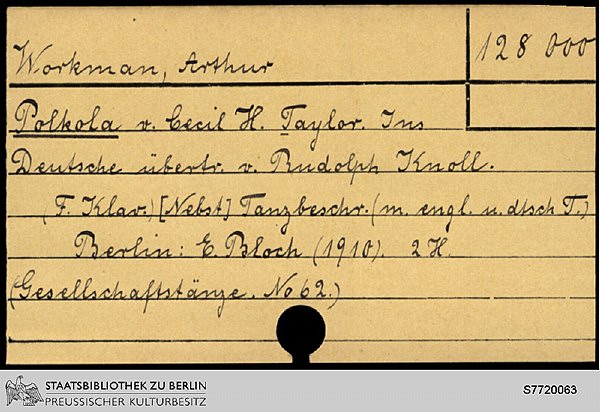 Workman, Arthur
128 000
Polkola v. Cecil H. Taylor. Ins
Deutsche übertr. v. Rudolph Knoll.
(F. Klav.) [Nebst] Tanzbeschr. (m. engl. u. dtsch T.)
Berlin: E. Bloch (1910). 2 H.
(Gesellschaftstänze. No 62.)
STAATSBIBLIOTHEK ZU BERLIN
PREUSSISCHER KULTURBESITZ
S7720063